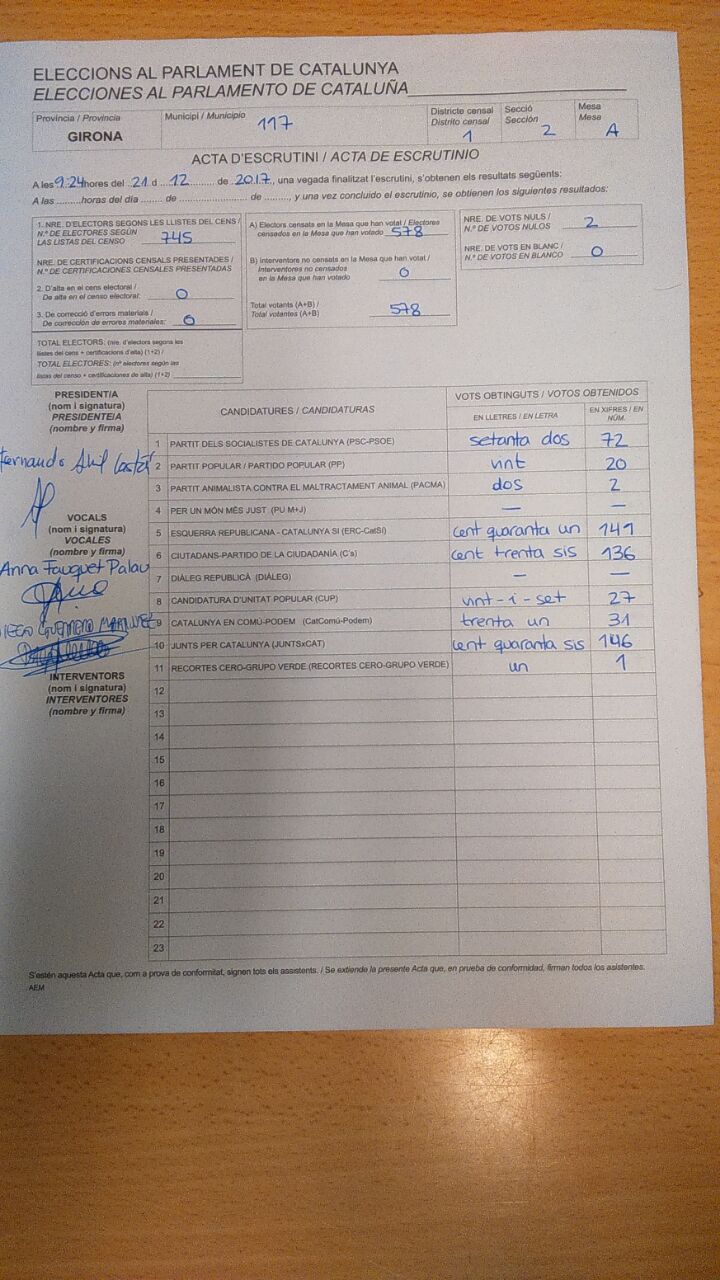 ELECCIONS AL PARLAMENT DE CATALUNYA
ELECCIONES AL PARLAMENTO DE CATALUÑA
Província / Provincia
GIRONA
Municipi / Municipio
117
Districte censal
Distrito censal
1
Secció
Sección
2
Mesa
Mesa
A
ACTA D'ESCRUTINI / ACTA DE ESCRUTINIO
A les 9:24 hores del 21 d 12 de 2017, una vegada finalitzat l'escrutini, s'obtenen els resultats següents:
A las ........horas del día ........ de ........................ de ........, y una vez concluido el escrutinio, se obtienen los siguientes resultados:
1. NRE. D'ELECTORS SEGONS LES LLISTES DEL CENS /
N.º DE ELECTORES SEGÚN
LAS LISTAS DEL CENSO 745
NRE. DE CERTIFICACIONS CENSALS PRESENTADES /
N.º DE CERTIFICACIONES CENSALES PRESENTADAS
2. D'alta en el cens electoral /
De alta en el censo electoral: 0
3. De correcció d'errors materials /
De corrección de errores materiales: 0
TOTAL ELECTORS: (nre. d'electors segons les
llistes del cens + certificacions d'alta) (1+2) /
TOTAL ELECTORES: (nº electores según las
listas del censo + certificaciones de alta) (1+2)
A) Electors censats en la Mesa que han votat / Electores
censados en la Mesa que han votado 578
B) Interventors no censats en la Mesa que han votat /
Interventores no censados
en la Mesa que han votado 0
Total votants (A+B) /
Total votantes (A+B) 578
NRE. DE VOTS NULS /
N.º DE VOTOS NULOS 2
NRE. DE VOTS EN BLANC /
N.º DE VOTOS EN BLANCO 0
PRESIDENT/A
(nom i signatura)
PRESIDENTE/A
(nombre y firma)
VOCALS
(nom i signatura)
VOCALES
(nombre y firma)
Anna Fauquet Palau
INTERVENTORS
(nom i signatura)
INTERVENTORES
(nombre y firma)
CANDIDATURES / CANDIDATURAS
VOTS OBTINGUTS / VOTOS OBTENIDOS
EN LLETRES / EN LETRA
EN XIFRES / EN NÚM.
1 PARTIT DELS SOCIALISTES DE CATALUNYA (PSC-PSOE) setanta dos 72
2 PARTIT POPULAR / PARTIDO POPULAR (PP) vint 20
3 PARTIT ANIMALISTA CONTRA EL MALTRACTAMENT ANIMAL (PACMA) dos 2
4 PER UN MÓN MÉS JUST (PU M+J) — —
5 ESQUERRA REPUBLICANA - CATALUNYA SÍ (ERC-CatSí) cent quaranta un 141
6 CIUTADANS-PARTIDO DE LA CIUDADANÍA (C's) cent trenta sis 136
7 DIÀLEG REPUBLICÀ (DIÀLEG) — —
8 CANDIDATURA D'UNITAT POPULAR (CUP) vint-i-set 27
9 CATALUNYA EN COMÚ-PODEM (CatComú-Podem) trenta un 31
10 JUNTS PER CATALUNYA (JUNTSxCAT) cent quaranta sis 146
11 RECORTES CERO-GRUPO VERDE (RECORTES CERO-GRUPO VERDE) un 1
12
13
14
15
16
17
18
19
20
21
22
23
S'estén aquesta Acta que, com a prova de conformitat, signen tots els assistents. / Se extiende la presente Acta que, en prueba de conformidad, firman todos los asistentes.
AEM